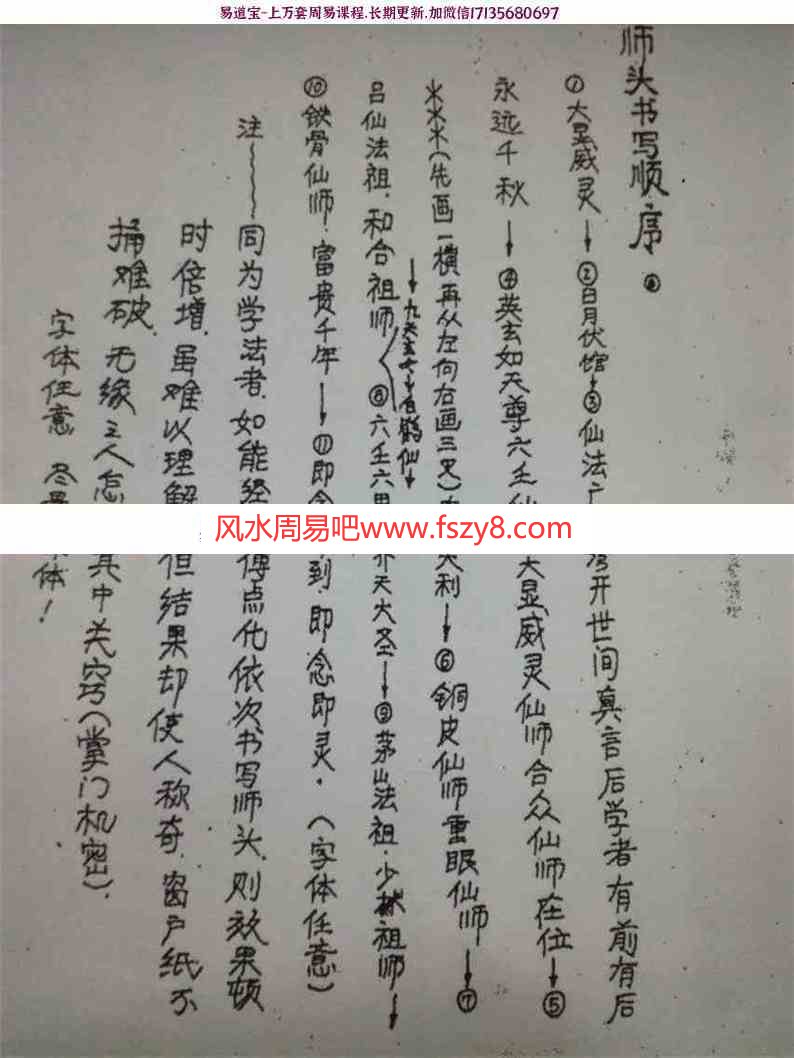 易道宝-上万套周易课程.长期更新.加微信17135680697
师头书写顺序。
①大显威灵→②日月伏馆→③仙法广 开世间真言后学者有前有后
永远千秋→④英玄如天尊六壬仙 大显威灵仙师合众仙师在位→⑤
(先画一横再从左向右画三叉) 大利→⑥铜皮仙师重眼仙师→⑦
→ 白鹤仙→
吕仙法祖.和合祖师 ⑧六壬六甲 齐天大圣→⑨茅山法祖.少林祖师→
⑩铁骨仙师.富贵千年→⑪即念 到.即念即灵.(字体任意)
注～同为学法者.如能经 傅点化依次书写师头.则效果顿
时倍增.虽难以理解 但结果却使人称奇.窗户纸不
捅难破.无缘之人怎 其中关窍(掌门机密).
字体任意 尽量 体!
风水周易吧www.fszy8.com